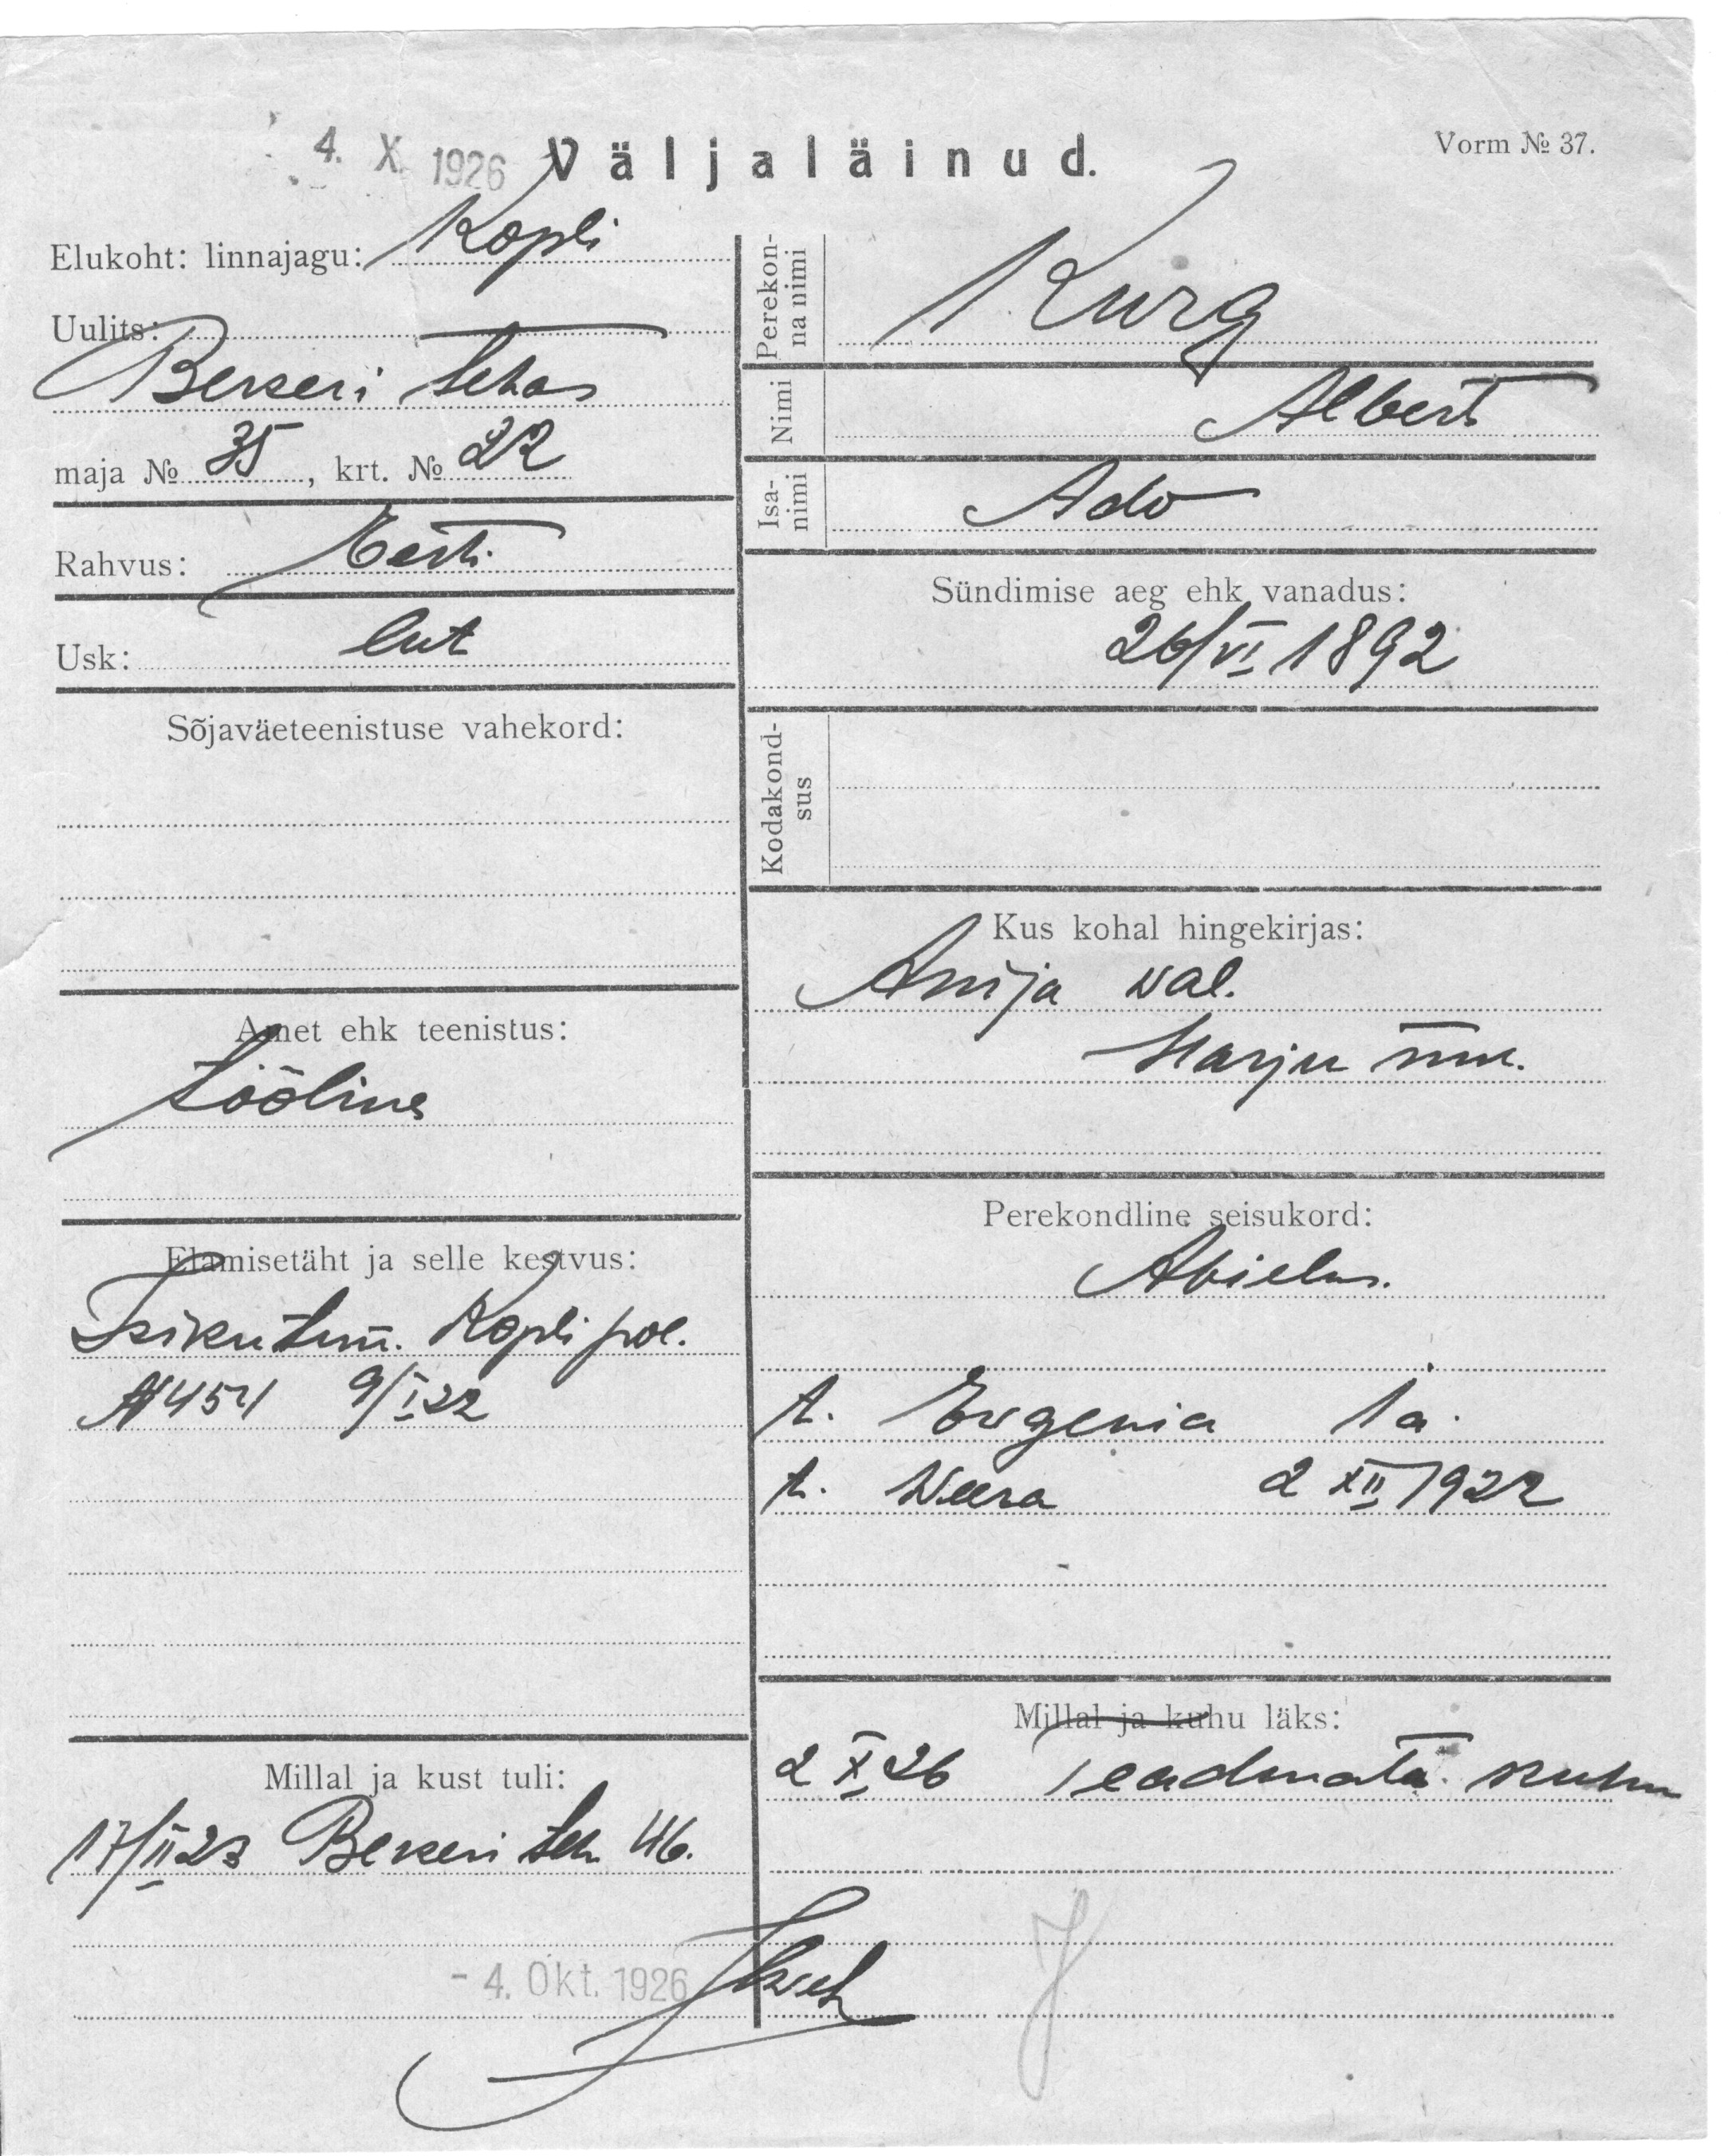 4. X. 1926 Väljaläinud.
Vorm № 37.
Elukoht: linnajagu: Kopli
Uulits:
Bekeri tehas
maja № 35, krt. № 22
Rahvus: Eesti
Usk: lut
Sõjaväeteenistuse vahekord:
Amet ehk teenistus:
tööline
Elamisetäht ja selle kestvus:
Isikutun. Kopli pol.
№ 454 9/I 22
Millal ja kust tuli:
17/II 23 Bekeri teh. 46.
- 4. Okt. 1926
Perekon-
na nimi
Kurg
Nimi Albert
Isa-
nimi
Ado
Sündimise aeg ehk vanadus:
26/VI 1892
Kodakond-
sus
Kus kohal hingekirjas:
Anija wal.
Harju mm.
Perekondline seisukord:
Abielus.
t. Evgenia 1 a.
t. Weera 2 XII 1922
Millal ja kuhu läks:
2 X 26 Teadmata kuhu